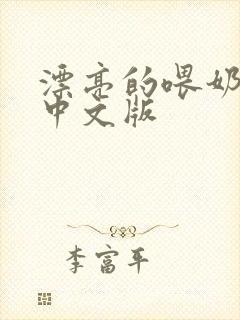 漂亮的喂奶
中文版
李富平